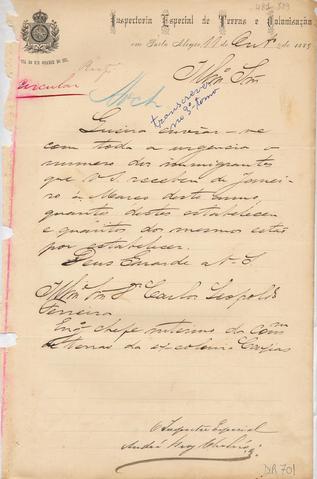 481 589
Inspectoria Especial de Terras e Colonisação
em Porto Alegre, 11 de de 1885
Circular
Illmo Snr.
transcrever
no 3º tomo
Queira enviar-me
com toda a urgencia o
numero dos immigrantes
que V. S. recebeu de Janei-
ro á Março deste anno,
quantos destes estabeleceu
e quantos dos mesmos estão
por estabelecer.
Deus Guarde a V. S.
Illmo Snr. Dr Carlos Leopoldo
Ferreira
Engº chefe interino da Comm
de terras da ex-colonia Caxias
O Inspector Especial
DR 701